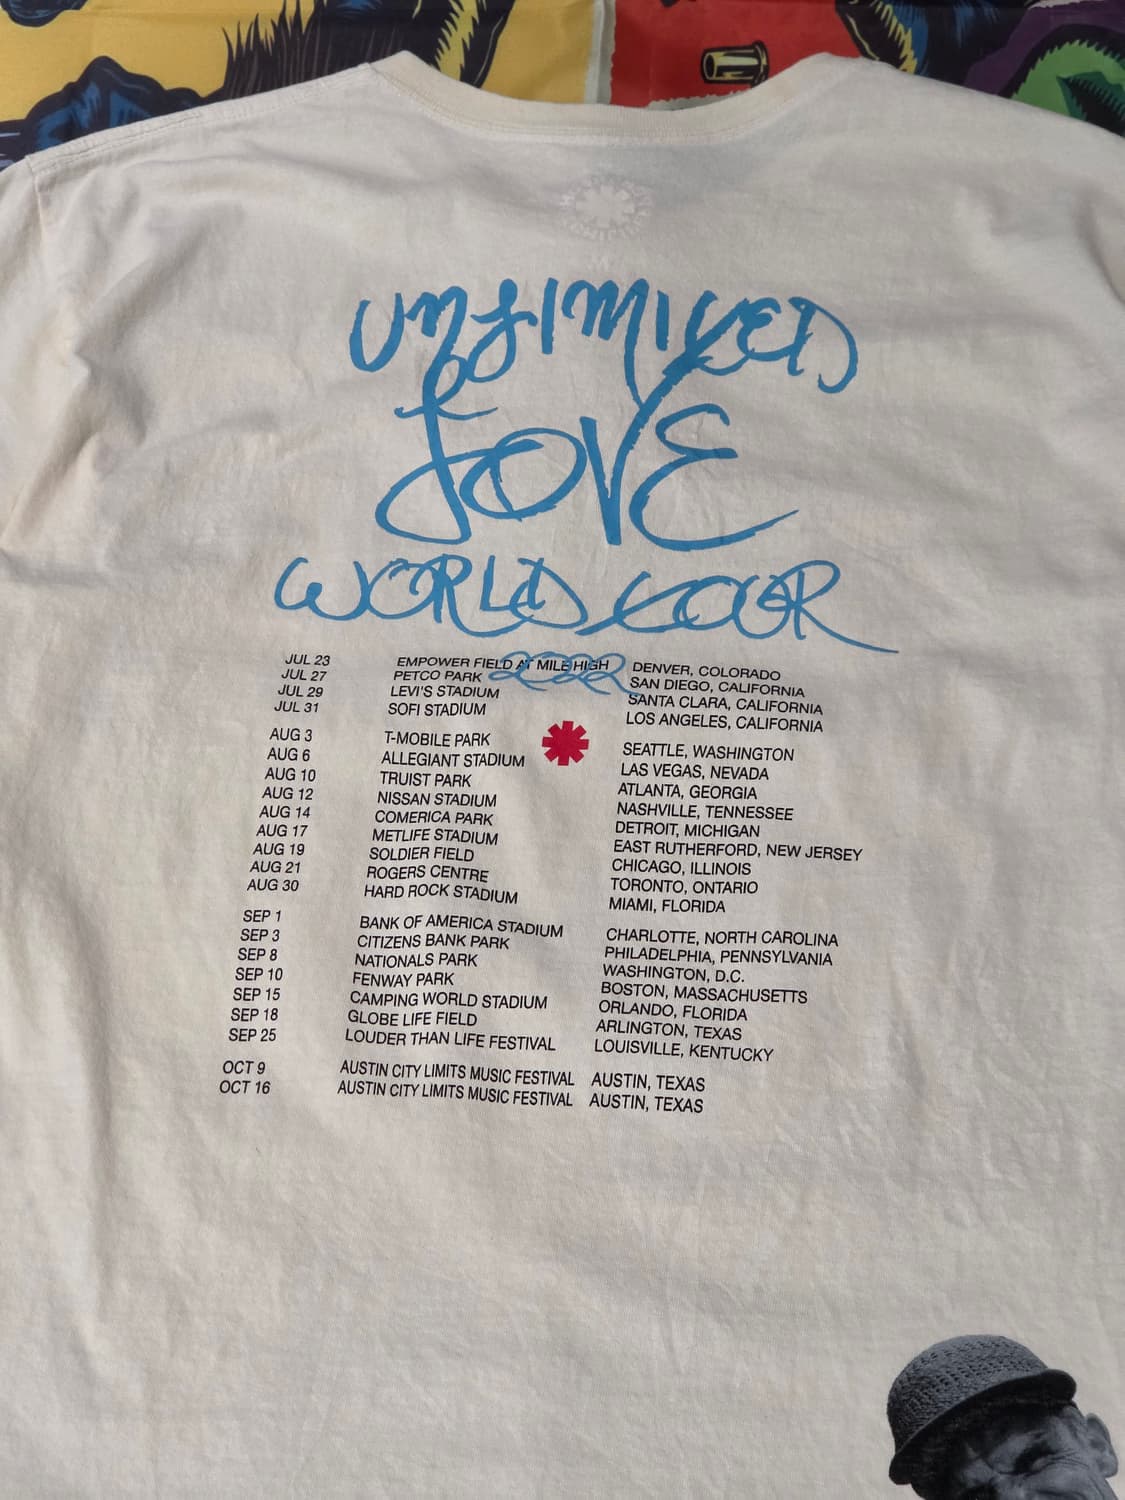 UNLIMITED
LOVE
WORLD TOUR
2022
JUL 23 EMPOWER FIELD AT MILE HIGH DENVER, COLORADO
JUL 27 PETCO PARK SAN DIEGO, CALIFORNIA
JUL 29 LEVI'S STADIUM SANTA CLARA, CALIFORNIA
JUL 31 SOFI STADIUM LOS ANGELES, CALIFORNIA
AUG 3 T-MOBILE PARK SEATTLE, WASHINGTON
AUG 6 ALLEGIANT STADIUM LAS VEGAS, NEVADA
AUG 10 TRUIST PARK ATLANTA, GEORGIA
AUG 12 NISSAN STADIUM NASHVILLE, TENNESSEE
AUG 14 COMERICA PARK DETROIT, MICHIGAN
AUG 17 METLIFE STADIUM EAST RUTHERFORD, NEW JERSEY
AUG 19 SOLDIER FIELD CHICAGO, ILLINOIS
AUG 21 ROGERS CENTRE TORONTO, ONTARIO
AUG 30 HARD ROCK STADIUM MIAMI, FLORIDA
SEP 1 BANK OF AMERICA STADIUM CHARLOTTE, NORTH CAROLINA
SEP 3 CITIZENS BANK PARK PHILADELPHIA, PENNSYLVANIA
SEP 8 NATIONALS PARK WASHINGTON, D.C.
SEP 10 FENWAY PARK BOSTON, MASSACHUSETTS
SEP 15 CAMPING WORLD STADIUM ORLANDO, FLORIDA
SEP 18 GLOBE LIFE FIELD ARLINGTON, TEXAS
SEP 25 LOUDER THAN LIFE FESTIVAL LOUISVILLE, KENTUCKY
OCT 9 AUSTIN CITY LIMITS MUSIC FESTIVAL AUSTIN, TEXAS
OCT 16 AUSTIN CITY LIMITS MUSIC FESTIVAL AUSTIN, TEXAS